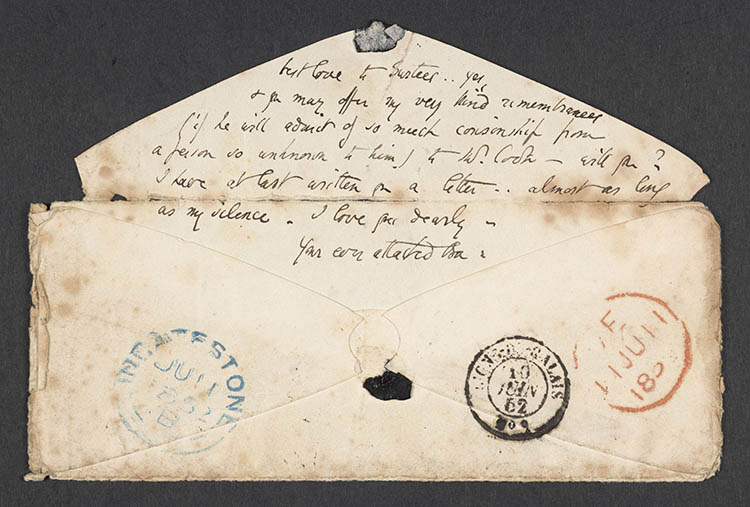 best love to .. yes,
& you may offer my very kind remembrances
(if he will admit of so much cousinship from
a person so unknown to him) to Mr. Cook – will you?
I have at last written you a letter .. almost as long
as my silence – I love you dearly –
Your ever attached Ba –
INGATESTONE
JU 11
1852
CALAIS
10
JUIN
52
E
11 JU 11
185